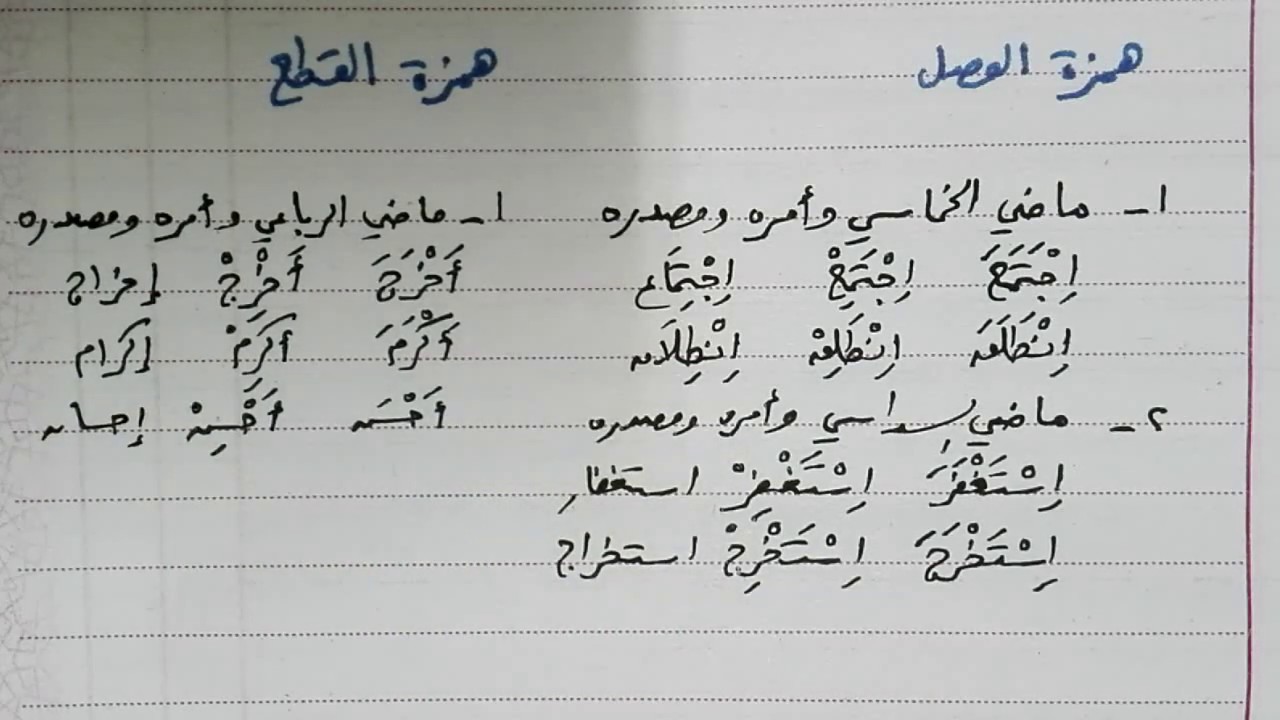 همزة الوصل
١- ماضي الخماسي وأمره ومصدره
اِجْتَمَعَ اِجْتَمِعْ اِجْتِمَاع
اِنْطَلَقَ اِنْطَلِقْ اِنْطِلَاق
٢- ماضي سداسي وأمره ومصدره
اِسْتَغْفَرَ اِسْتَغْفِرْ استغفار
اِسْتَخْرَجَ اِسْتَخْرِجْ استخراج
همزة القطع
١- ماضي الرباعي وأمره ومصدره
أَخْرَجَ أَخْرِجْ إخراج
أَكْرَمَ أكرِمْ إكرام
أَحْسَن أَحْسِنْ إحسان